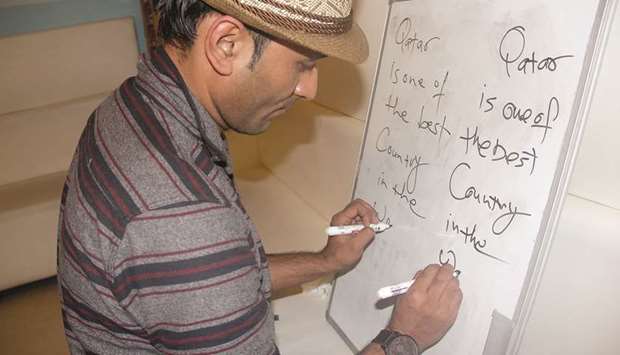 Qatar
is one of
the best
Country
in the
Qatar
is one of
the best
Country
in the